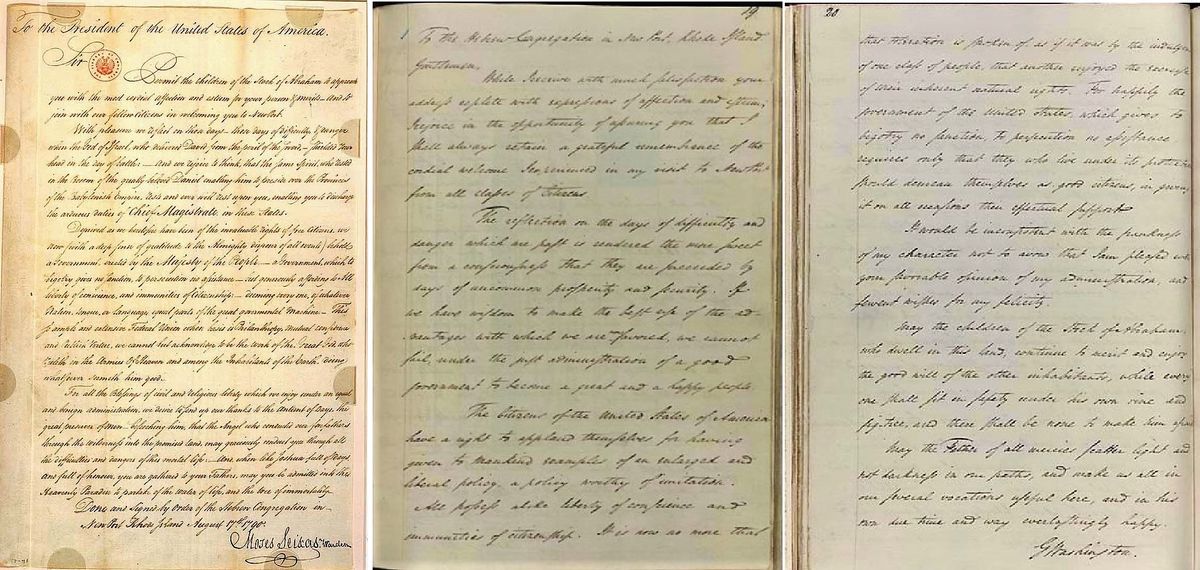 To the President of the United States of America.
Sir
Permit the children of the Stock of Abraham to approach
you with the most cordial affection and esteem for your person & merits — and to
join with our fellow Citizens in welcoming you to NewPort.
With pleasure we reflect on those days — those days of difficulty, & danger
when the God of Israel, who delivered David from the peril of the sword, — shielded Your
head in the day of battle: — And we rejoice to think, that the same Spirit, who rested
in the Bosom of the greatly beloved Daniel enabling him to preside over the Provinces
of the Babylonish Empire, rests and ever will rest upon you, enabling you to discharge
the arduous duties of Chief Magistrate in these States.
Deprived as we heretofore have been of the invaluable rights of free Citizens, we
now (with a deep sense of gratitude to the Almighty disposer of all events) behold
a Government, erected by the Majesty of the People — a Government, which to
bigotry gives no sanction, to persecution no assistance — but generously affording to All
liberty of conscience, and immunities of Citizenship: — deeming every one, of whatever
Nation, tongue, or language, equal parts of the great governmental Machine: — This
so ample and extensive Federal Union whose basis is Philanthropy, mutual confidence
and Publick Virtue, we cannot but acknowledge to be the work of the Great God, who
ruleth in the Armies Of Heaven and among the Inhabitants of the Earth, doing
whatsoever seemeth him good.
For all the Blessings of civil and religious liberty which we enjoy under an equal
and benign administration, we desire to send up our thanks to the Antient of Days, the
great preserver of Men — beseeching him, that the Angel who conducted our forefathers
through the wilderness into the promised land, may graciously conduct you through all
the difficulties and dangers of this mortal life: — And, when like Joshua full of days
and full of honour, you are gathered to your Fathers, may you be admitted into the
Heavenly Paradise to partake of the water of life, and the tree of immortality.
Done and Signed by Order of the Hebrew Congregation in
NewPort Rhode Island August 17th 1790.
Moses Seixas Warden
19
To the Hebrew Congregation in New Port, Rhode Island
Gentlemen,
While I receive with much satisfaction your
address replete with expressions of affection and esteem;
I rejoice in the opportunity of assuring you that I
shall always retain a grateful remembrance of the
cordial welcome I experienced in my visit to NewPort
from all classes of Citizens.
The reflection on the days of difficulty and
danger which are past is rendered the more sweet
from a consciousness that they are succeeded by
days of uncommon prosperity and security. If
we have wisdom to make the best use of the ad-
vantages with which we are now favored, we cannot
fail, under the just administration of a good
government to become a great and a happy people.
The Citizens of the United States of America
have a right to applaud themselves for having
given to mankind examples of an enlarged and
liberal policy, a policy worthy of imitation.
All possess alike liberty of conscience and
immunities of citizenship. It is now no more that
20
that toleration is spoken of, as if it was by the indulgence
of one class of people, that another enjoyed the exercise
of their inherent natural rights. For happily the
Government of the United States, which gives to
bigotry no sanction, to persecution no assistance
requires only that they who live under its protection
should demean themselves as good citizens, in giving
it on all occasions their effectual support.
It would be inconsistent with the frankness
of my character not to avow that I am pleased with
your favorable opinion of my administration, and
fervent wishes for my felicity.
May the children of the Stock of Abraham,
who dwell in this land, continue to merit and enjoy
the good will of the other inhabitants, while every
one shall sit in safety under his own vine and
figtree, and there shall be none to make him afraid.
May the Father of all mercies scatter light and
not darkness in our paths, and make us all in
our several vocations useful here, and in his
own due time and way everlastingly happy.
G. Washington.